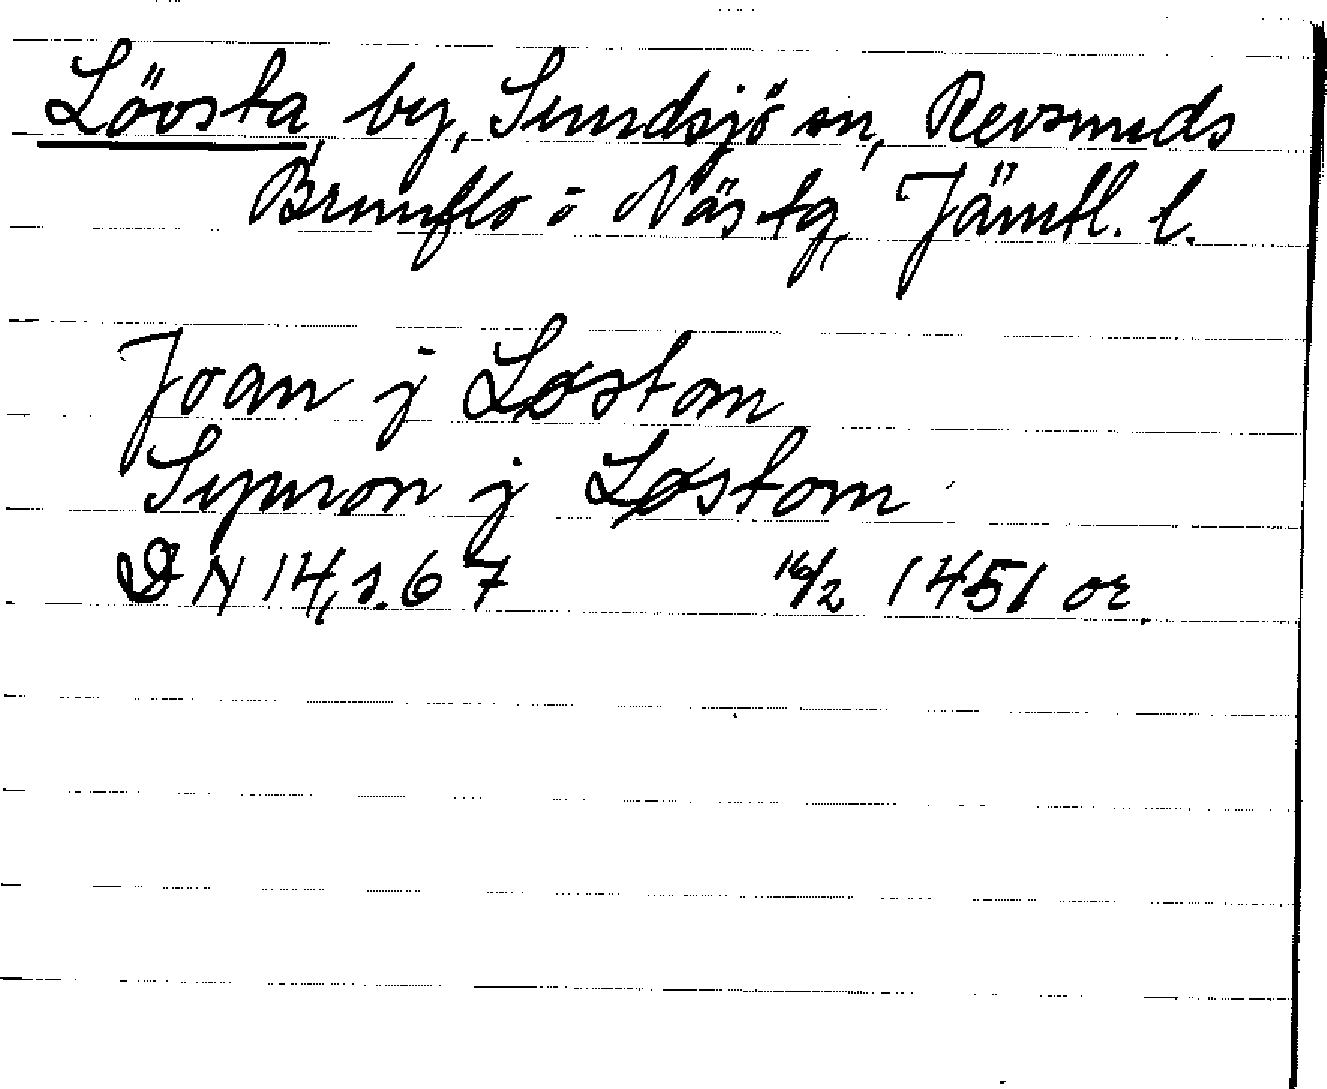 Lövsta, by, Sundsjö sn, Revsunds
Brunflo o Näs tg, Jämtl. l.
Joan j Løstom
Symon j Løstom
DN 14, s. 67 16/2 1451 or.